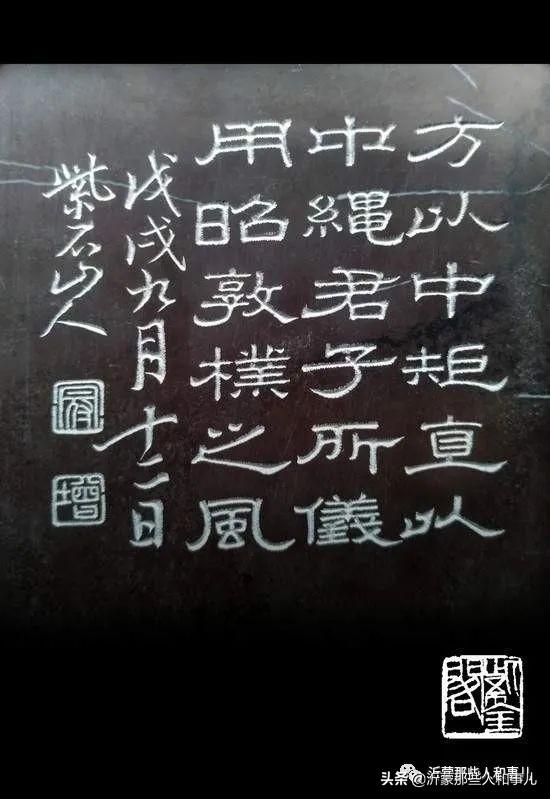 方以中矩直以
中繩君子所儀
用昭敦樸之風
戊戌九月十二日
紫石山人
頭条@沂蒙那些人和事儿
沂蒙那些人和事儿